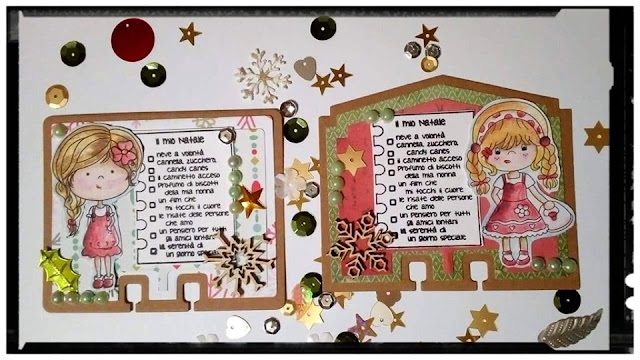 Il mio Natale
neve a volontà
cannella, zucchero,
candy canes
il caminetto acceso
profumo di biscotti
della mia nonna
un film che
mi tocchi il cuore
le risate delle persone
che amo
un pensiero per tutti
gli amici lontani
la serenità di
un giorno speciale
Il mio Natale
neve a volontà
cannella, zucchero,
candy canes
il caminetto acceso
profumo di biscotti
della mia nonna
un film che
mi tocchi il cuore
le risate delle persone
che amo
un pensiero per tutti
gli amici lontani
la serenità di
un giorno speciale